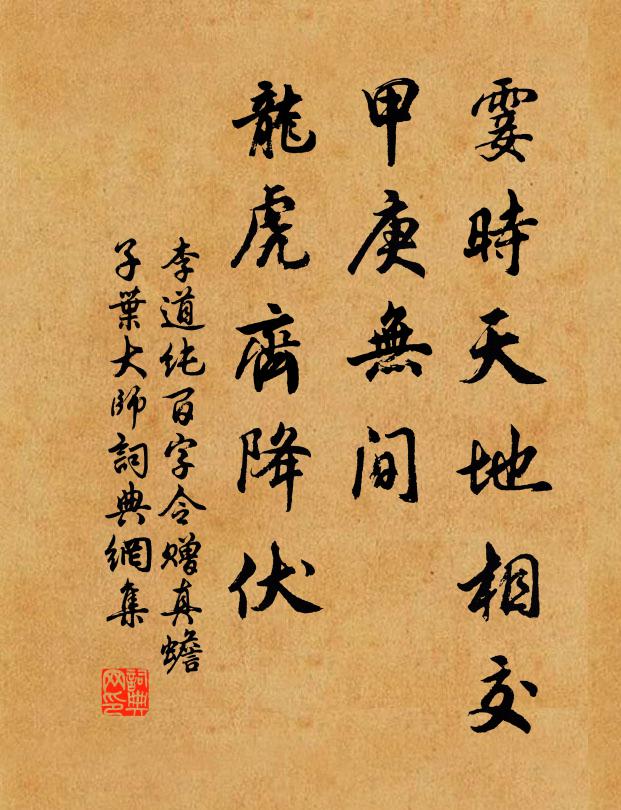 霎時天地相交
甲庚無間
龍虎齊降伏
李道纯百字令赠真蟾
子葉大師詞典網集
詞典网印